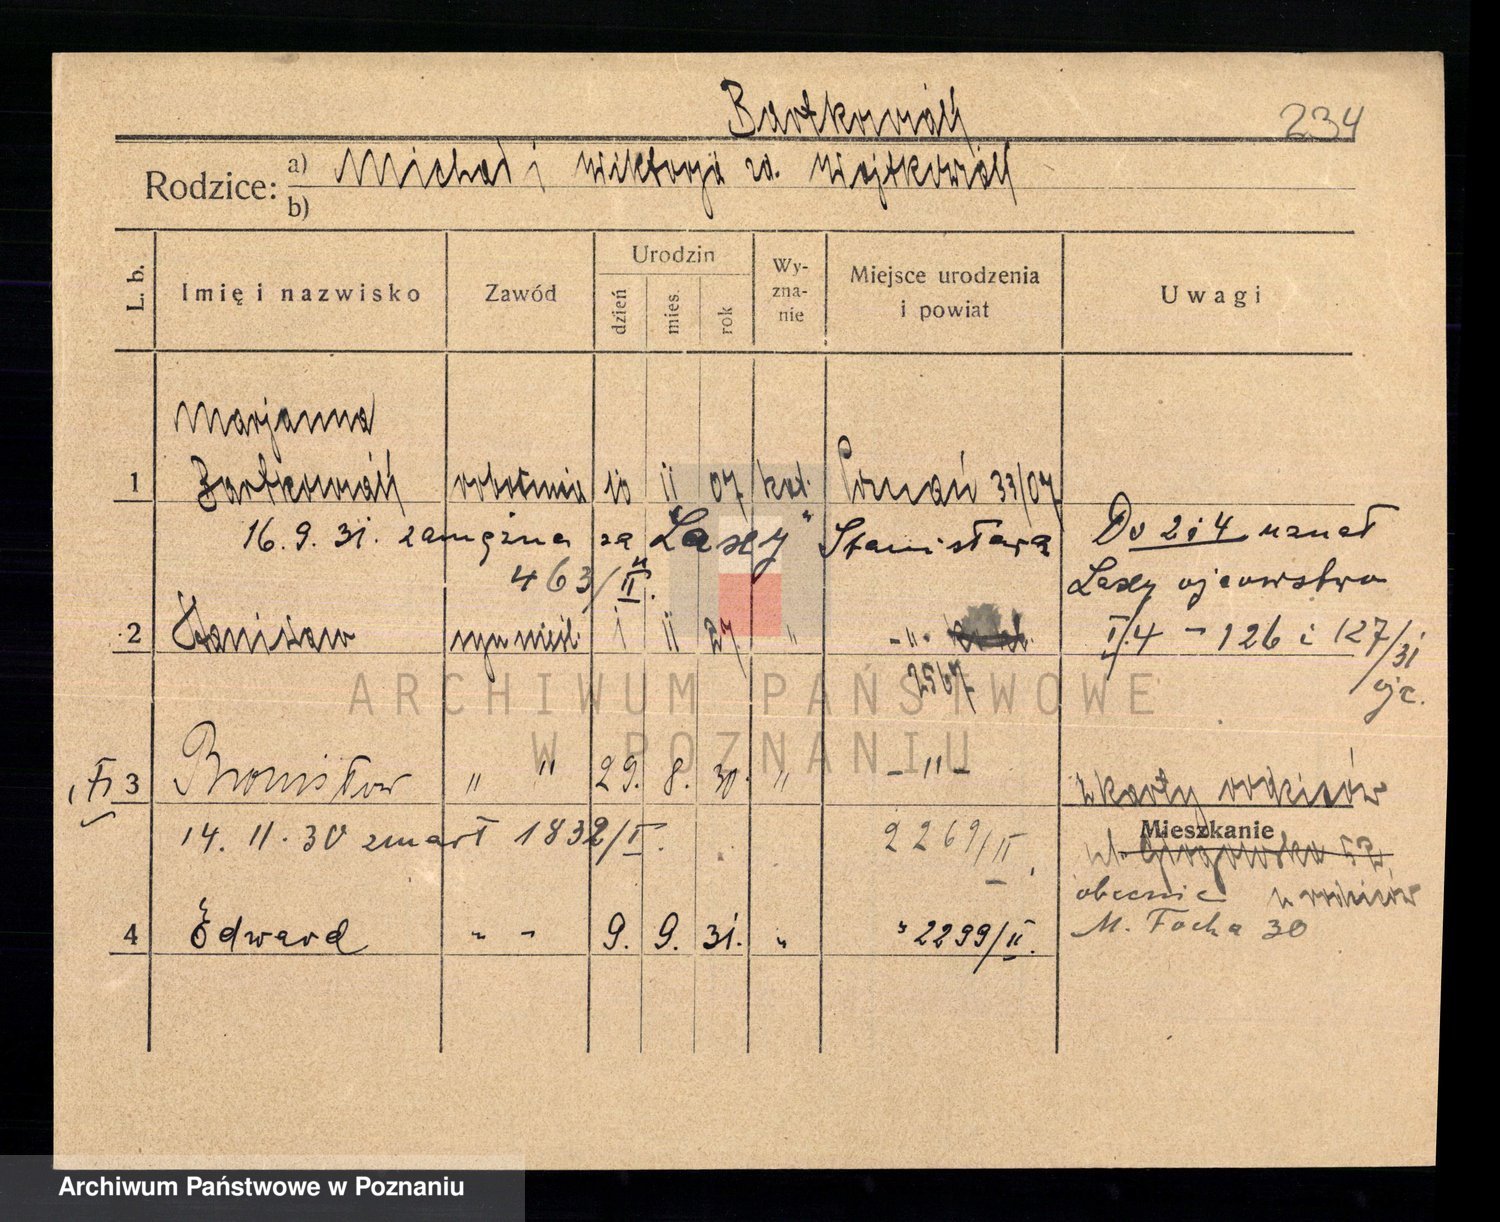 Bartkowiak
234
Rodzice: a) Michał i Wiktorja zd. Wojtkowiak
b)
L. b. Imię i nazwisko Zawód Urodzin dzień mies. rok Wy-zna-nie Miejsce urodzenia i powiat Uwagi
Marjanna
1 Bartkowiak robotnica 10 11 07 kat. Poznań 33/07
16. 9. 31. zamężna za "Lasey" Stanisława
463/II.
Do 2 i 4 uznał
Lasey ojcowstwo
2 Stanisław syn nieśl. 1 11 27 " -"-
I/4 - 126 i 127/31
ojc.
2567
† 3 Bronisław " " 29. 8. 30. " -"-
z karty rodziców
14. 11. 30 zmarł 1832/II. 2269/II.
Mieszkanie
ul. Głogowska 52
obecnie u rodziców
4 Edward " - 9. 9. 31. " " 2299/II.
M. Focha 30
ARCHIWUM PAŃSTWOWE
W POZNANIU
Archiwum Państwowe w Poznaniu